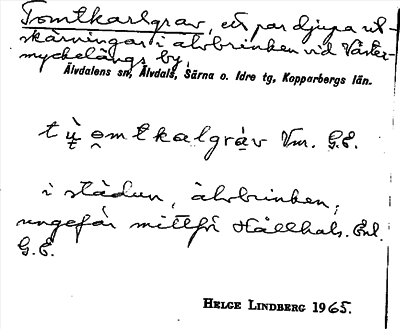 Tomtkarlgrav, ett par djupa ut-
skärningar i älvbrinken vid Väster-
myckeläng by,
Älvdalens sn, Älvdals, Särna o. Idre tg, Kopparbergs län.
Vm. G.E.
i städun, älvbrinken,
ungefär mittför Hållhals. Enl.
G.E.
HELGE LINDBERG 1965.